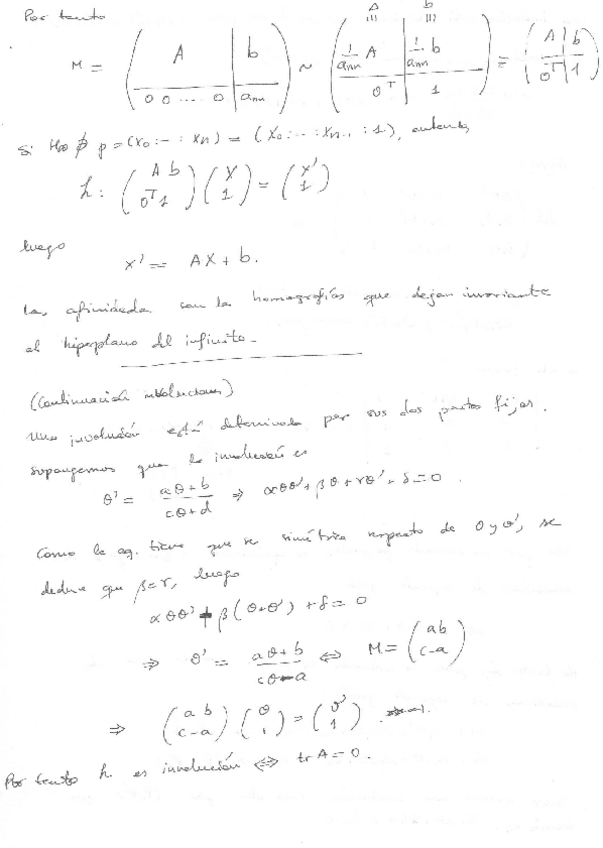 Por tanto
M = ( A | b ; 0 0 ... 0 | a_nn ) ~ ( 1/a_nn A | 1/a_nn b ; 0^T | 1 ) = ( A | b ; 0^T | 1 )
A b
Si H∞ ∌ p = (x_0 : - : x_n) = (x_0 : - : x_n-1 : 1), entonces
h : ( A b ; 0^T 1 ) ( X ; 1 ) = ( X' ; 1 )
luego
x' = AX + b.
Las afinidades son las homografías que dejan invariante
al hiperplano del infinito.
(Continuación involuciones)
Una involución está determinada por sus dos puntos fijos.
supongamos que la involución es
θ' = (aθ + b)/(cθ + d) ⇒ αθθ' + βθ + γθ' + δ = 0.
Como la eq. tiene que ser simétrica respecto de θ y θ', se
deduce que β = γ, luego
αθθ' + β(θ + θ') + δ = 0
⇒ θ' = (aθ + b)/(cθ - a) ⇔ M = ( a b ; c -a )
⇒ ( a b ; c -a ) ( θ ; 1 ) = ( θ' ; 1 )
Por tanto h es involución ⇔ tr A = 0.